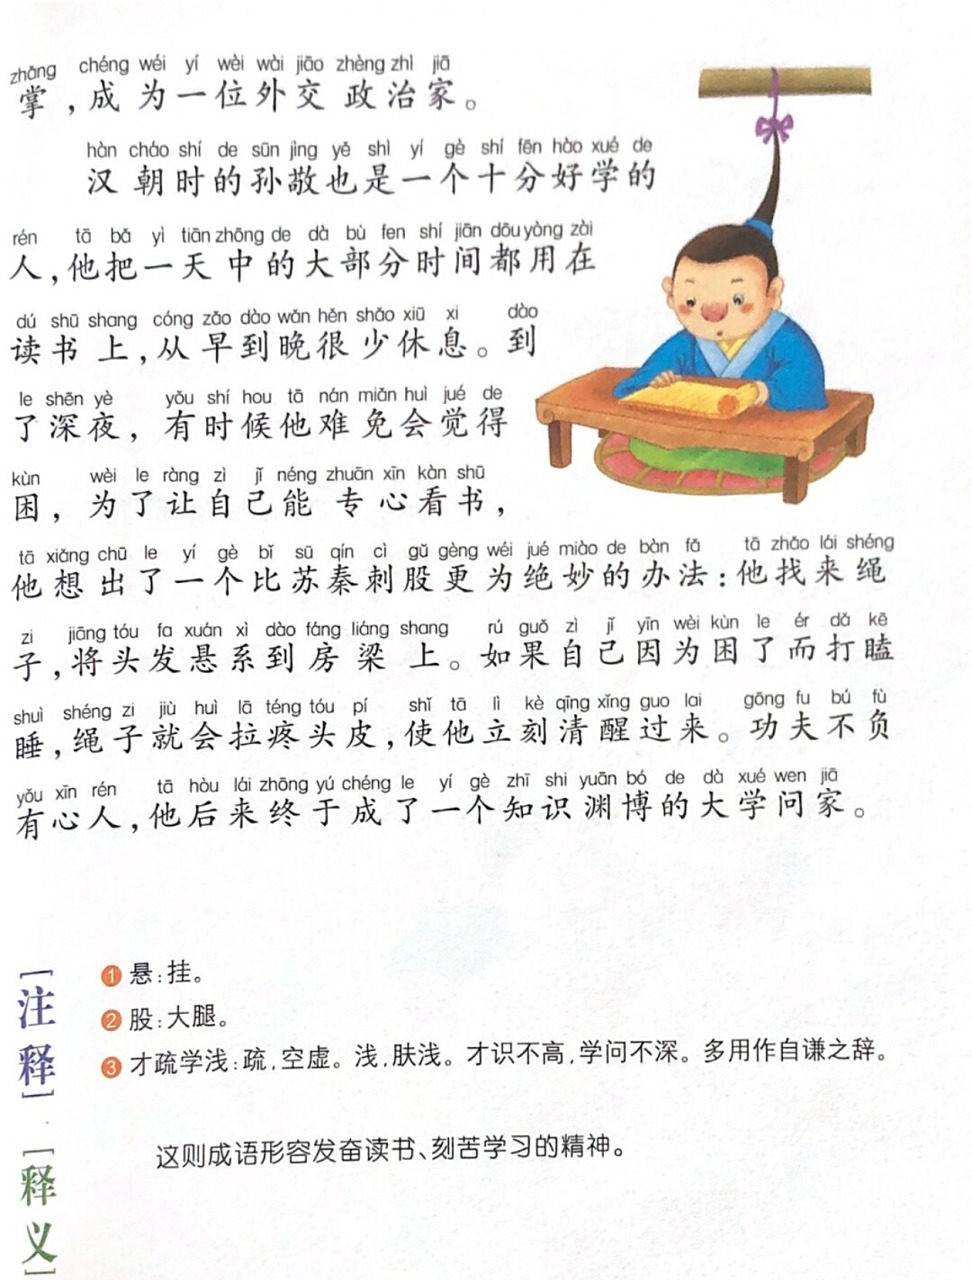 zhǎng chéng wéi yí wèi wài jiāo zhèng zhì jiā
掌，成为一位外交政治家。
hàn cháo shí de sūn jìng yě shì yí gè shí fēn hào xué de
汉朝时的孙敬也是一个十分好学的
rén tā bǎ yì tiān zhōng de dà bù fen shí jiān dōu yòng zài
人，他把一天中的大部分时间都用在
dú shū shang cóng zǎo dào wǎn hěn shǎo xiū xi dào
读书上，从早到晚很少休息。到
le shēn yè yǒu shí hou tā nán miǎn huì jué de
了深夜，有时候他难免会觉得
kùn wèi le ràng zì jǐ néng zhuān xīn kàn shū
困，为了让自己能专心看书，
tā xiǎng chū le yí gè bǐ sū qín cì gǔ gèng wéi jué miào de bàn fǎ tā zhǎo lái shéng
他想出了一个比苏秦刺股更为绝妙的办法：他找来绳
zi jiāng tóu fa xuán xì dào fáng liáng shang rú guǒ zì jǐ yīn wèi kùn le ér dǎ kē
子，将头发悬系到房梁上。如果自己因为困了而打瞌
shuì shéng zi jiù huì lā téng tóu pí shǐ tā lì kè qīng xǐng guo lai gōng fu bú fù
睡，绳子就会拉疼头皮，使他立刻清醒过来。功夫不负
yǒu xīn rén tā hòu lái zhōng yú chéng le yí gè zhī shi yuān bó de dà xué wen jiā
有心人，他后来终于成了一个知识渊博的大学问家。
[注释]
1 悬：挂。
2 股：大腿。
3 才疏学浅：疏，空虚。浅，肤浅。才识不高，学问不深。多用作自谦之辞。
[释义]
这则成语形容发奋读书、刻苦学习的精神。